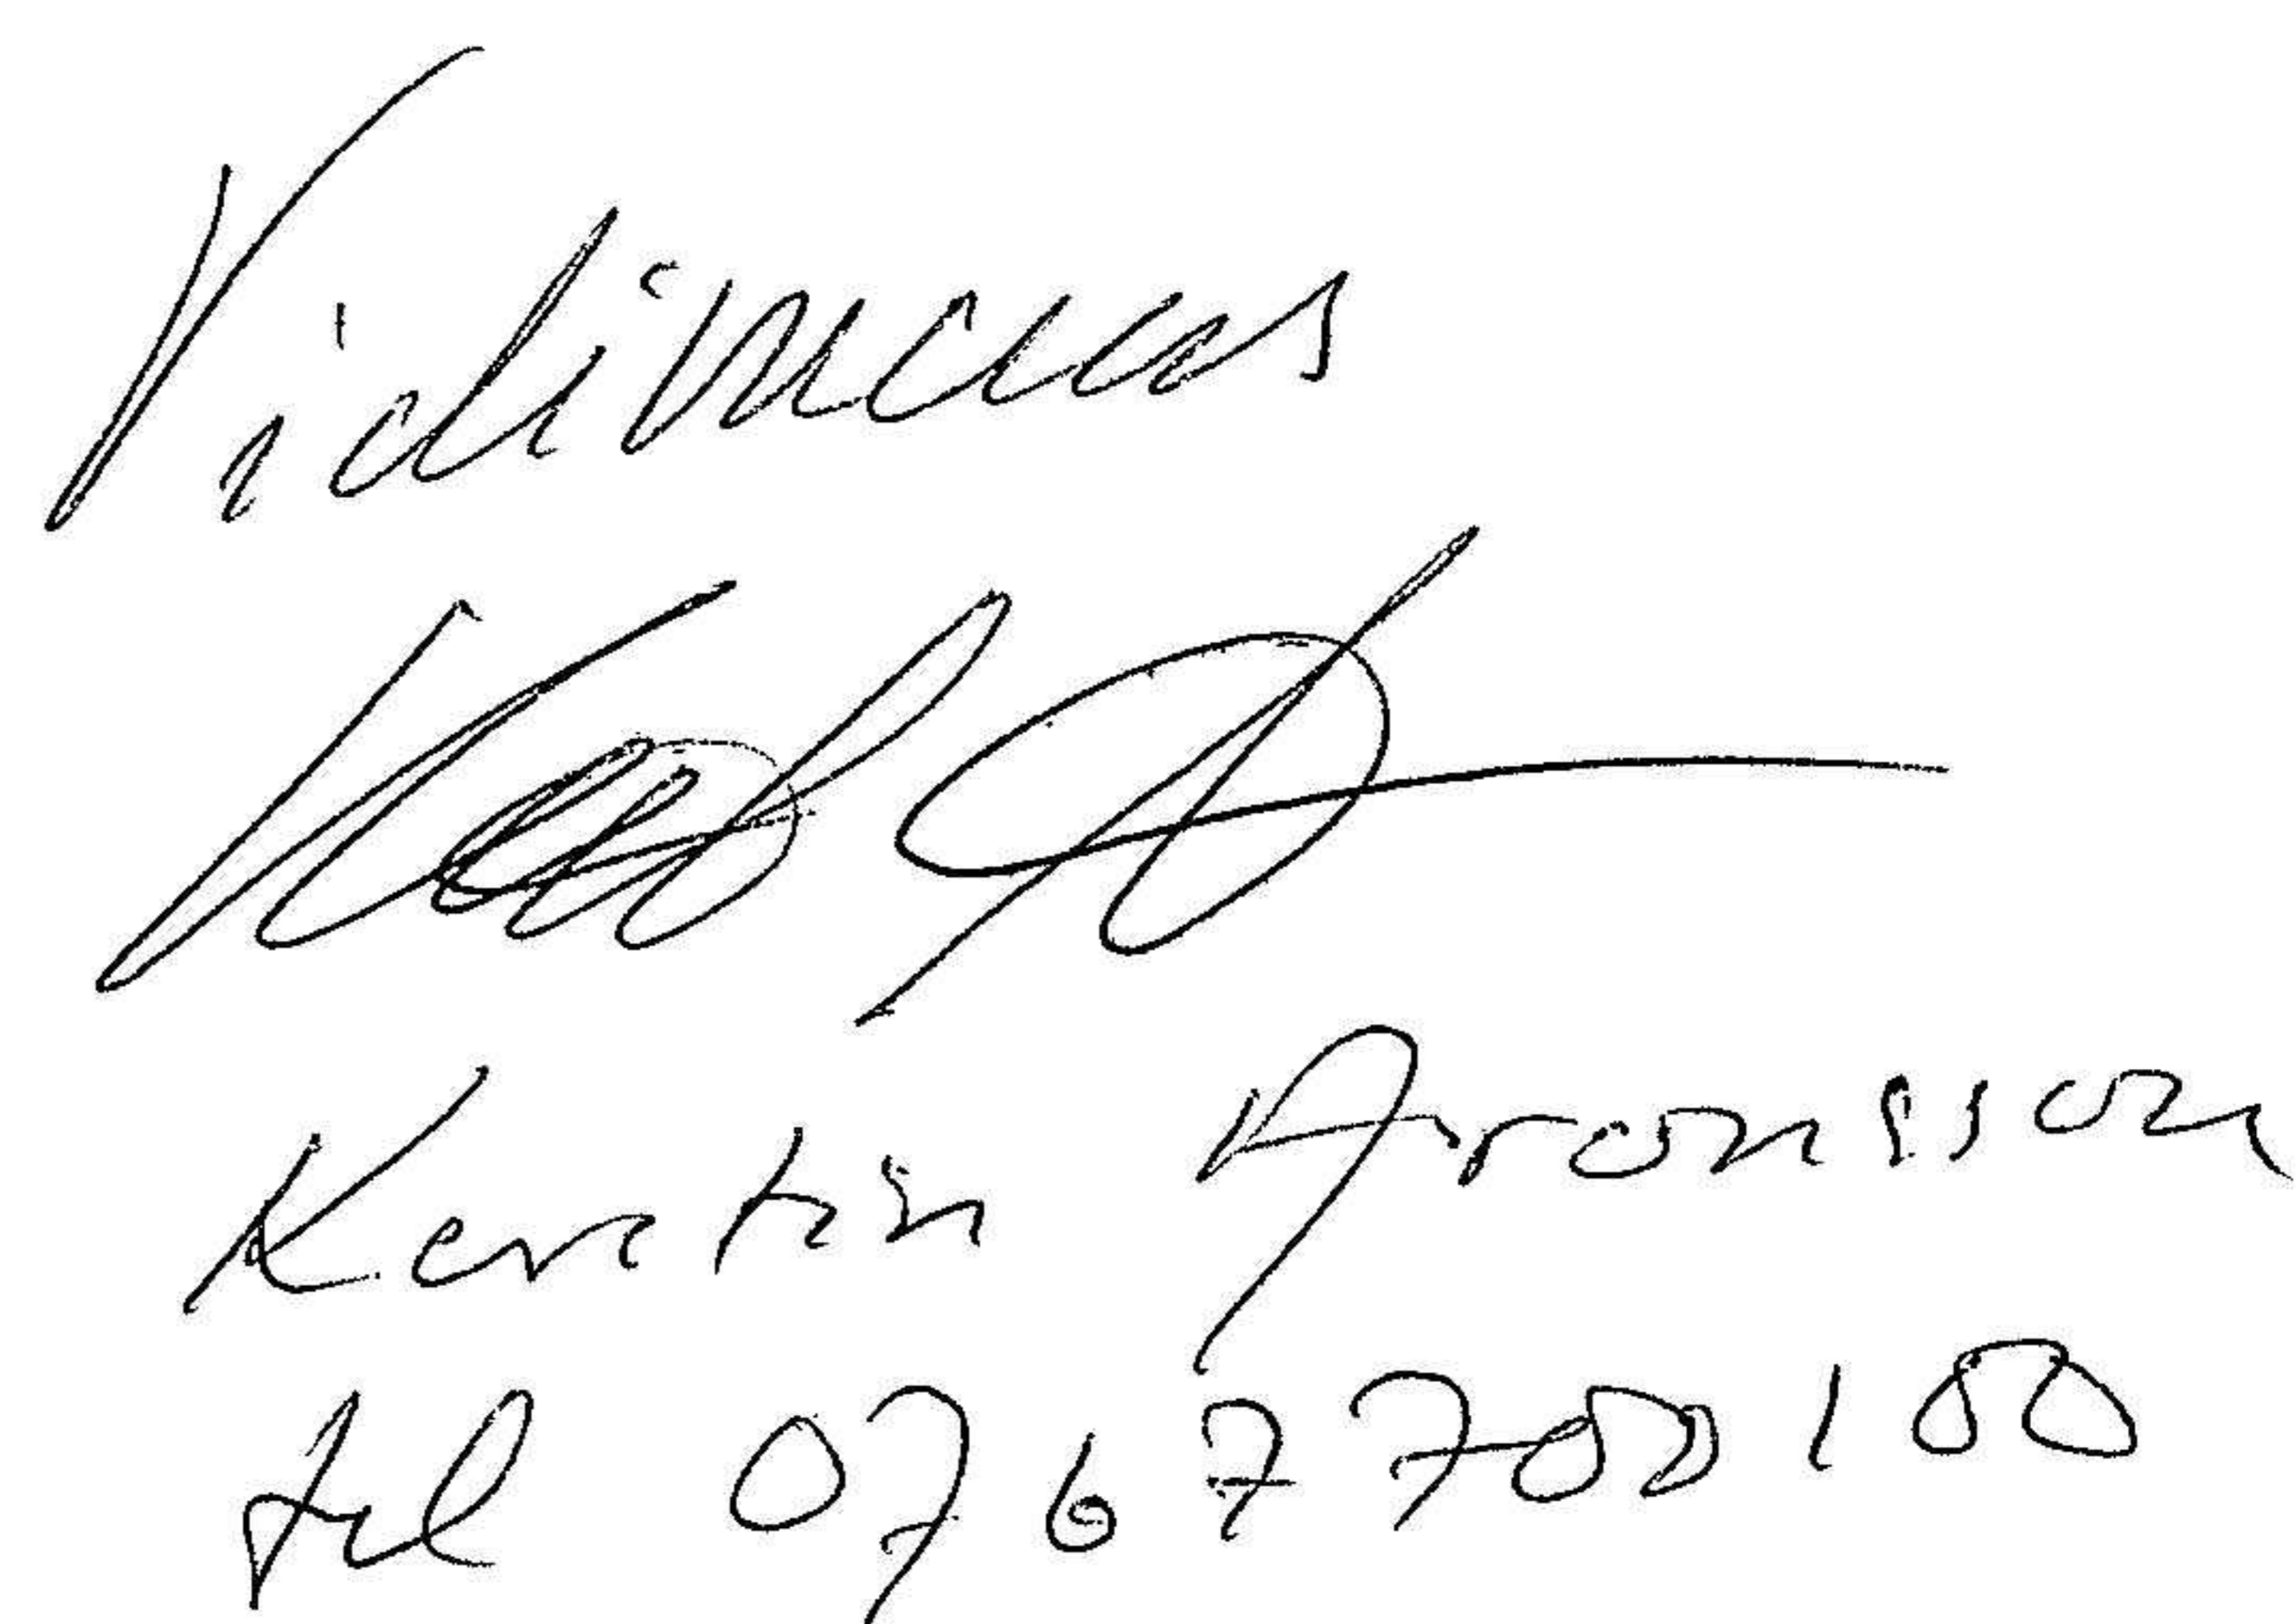 Vidimeras
Kerstin Aronsson
tel 0767700100